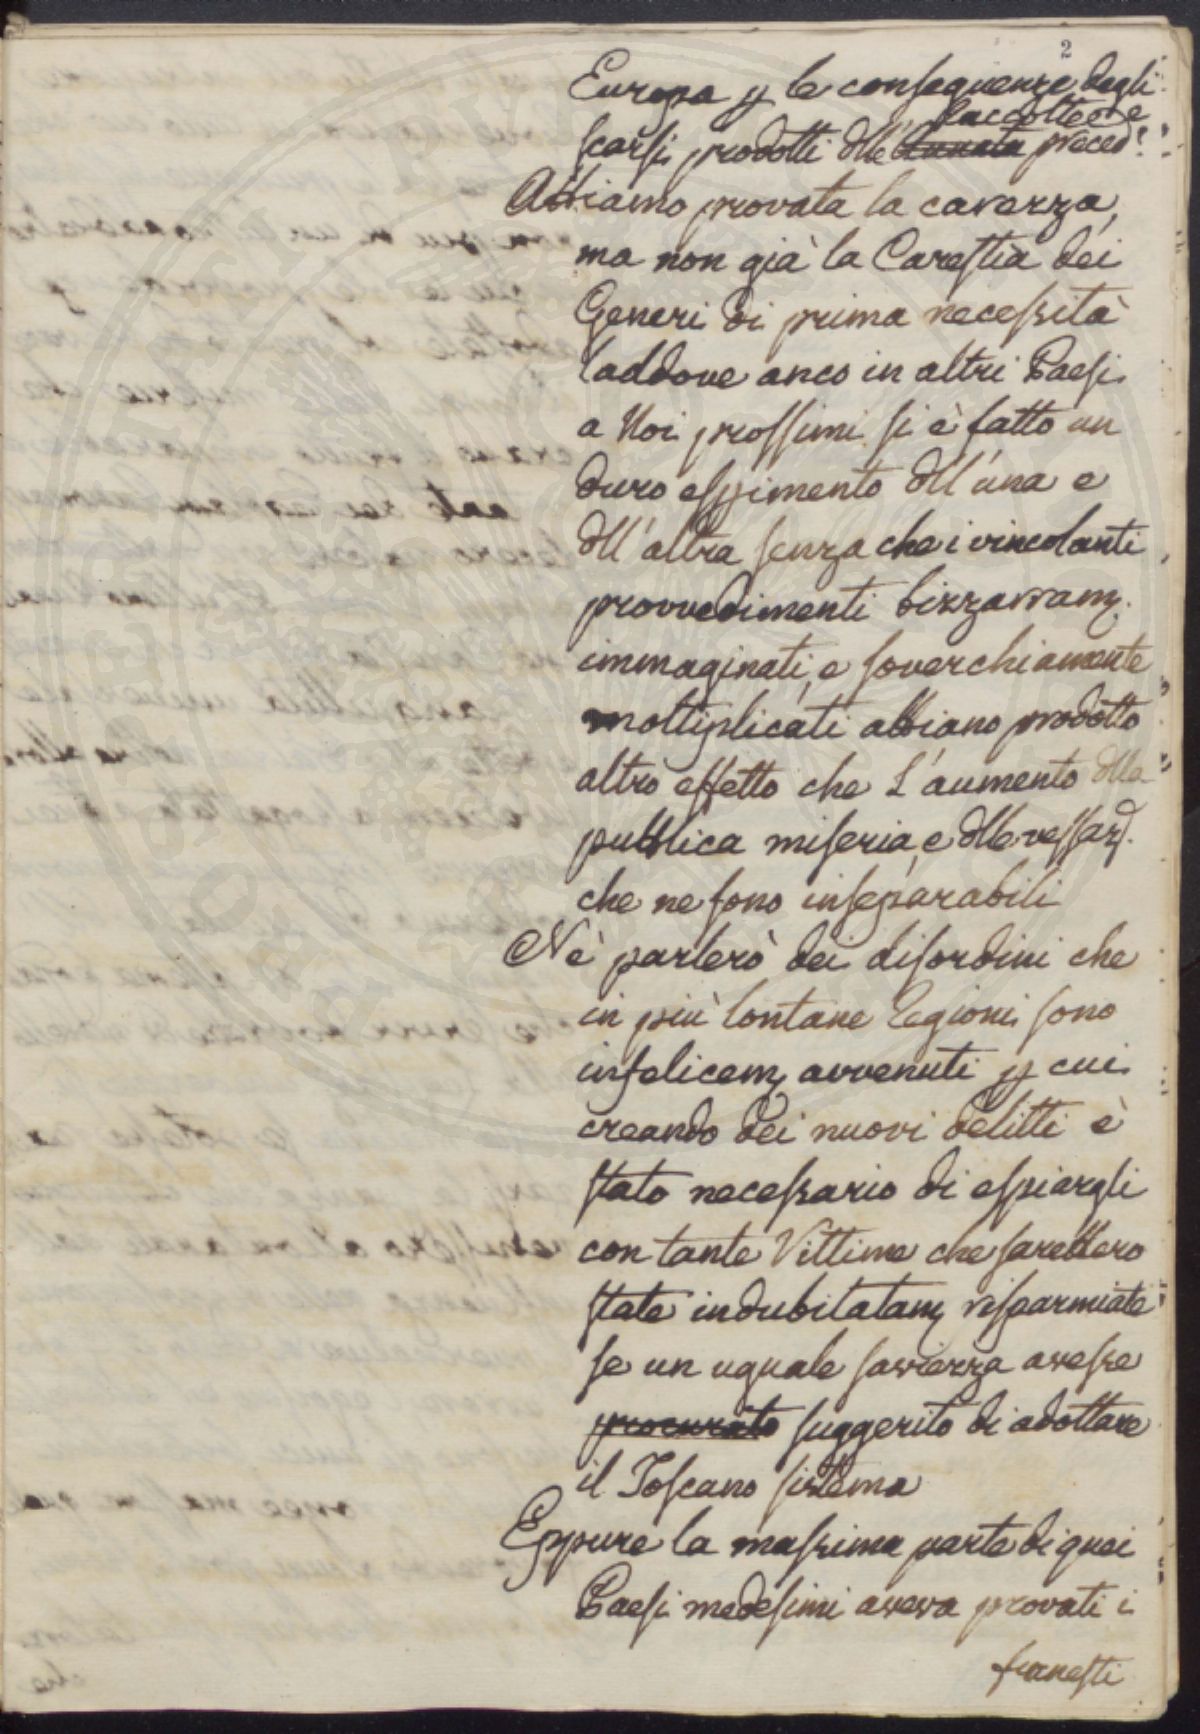 2
Europa p le conseguenze degli
Raccolte
scarsi prodotti dlle Annata preced.ⁱ
Abbiamo provata la carezza,
ma non già la Carestia dei
Generi di prima necessità
laddove anco in altri Paesi
a Noi prossimi si è fatto un
duro espimento dll'una e
dll'altra senza che i vincolanti
provvedimenti bizzarram.
immaginati, e soverchiamente
moltiplicati abbiano prodotto
altro effetto che l'aumento dlla
pubblica miseria, e dlle vessaz.
che ne sono inseparabili
Nè parlerò dei disordini che
in più lontane Regioni sono
infelicem avvenuti p cui
creando dei nuovi delitti è
stato necessario di espiargli
con tante Vittime che sarebbero
state indubitatam risparmiate
se un uguale saviezza avesse
procurato suggerito di adottare
il Toscano sistema
Eppure la massima parte di quei
Paesi medesimi aveva provati i
funesti